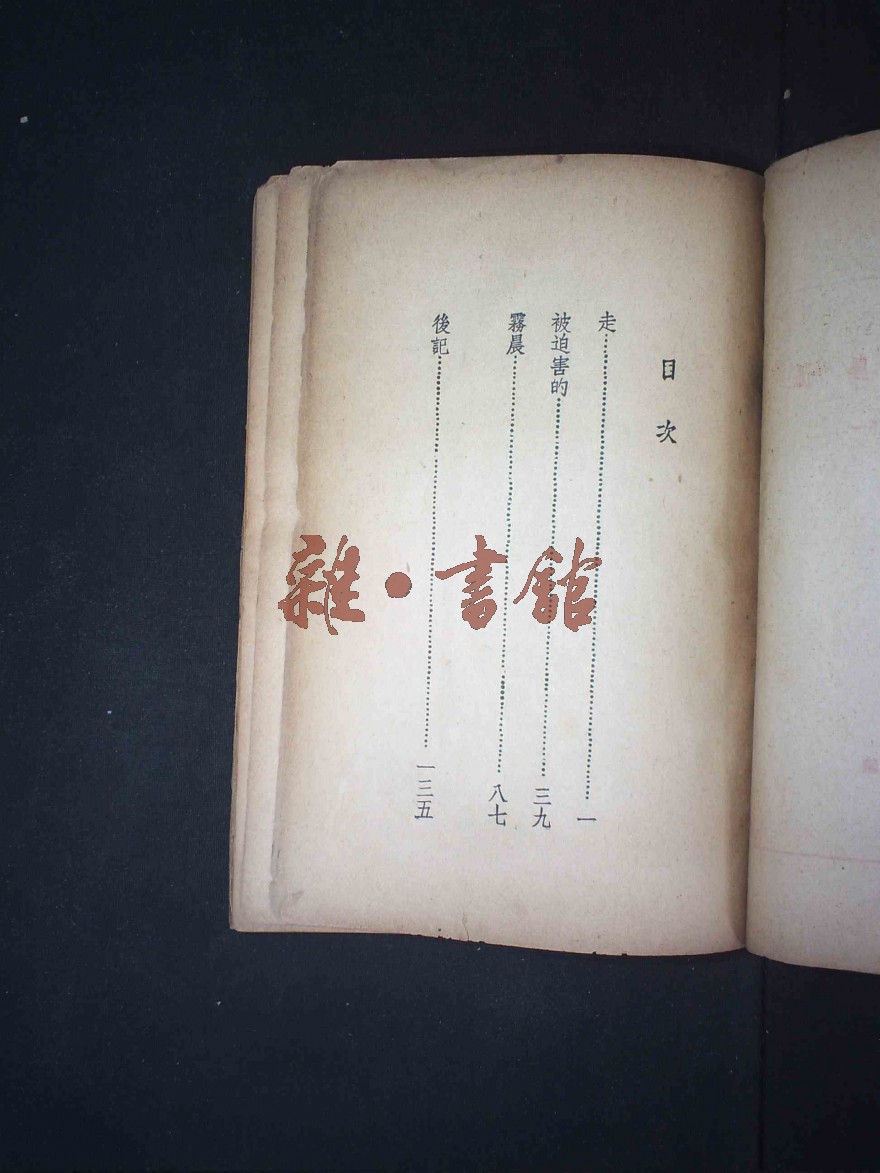 目次
走……一
被迫害的……三九
霧晨……八七
後記……一三五
雜·書館